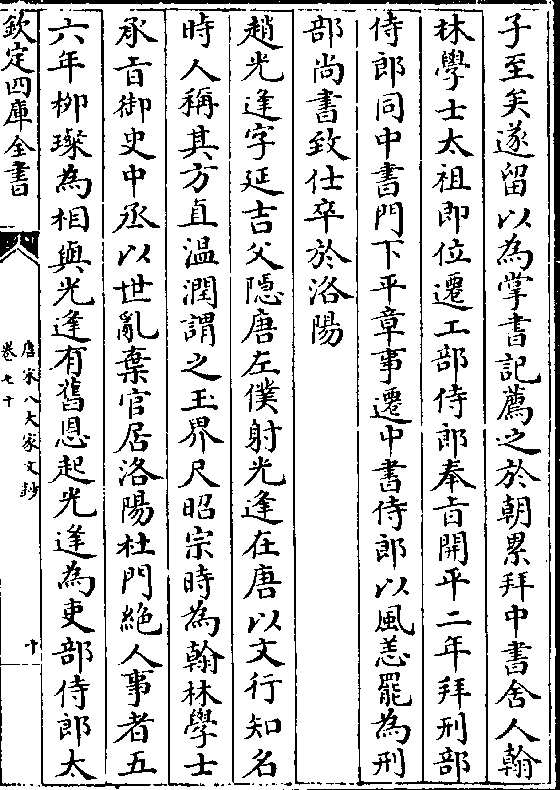 子至矣遂留以為掌書記薦之於朝累拜中書舍人翰
林學士太祖即位遷工部侍郎奉旨開平二年拜刑部
侍郎同中書門下平章事遷中書侍郎以風恙罷為刑
部尚書致仕卒於洛陽
趙光逢字延吉父隠唐左僕射光逢在唐以文行知名
時人稱其方直溫潤謂之玉界尺昭宗時為翰林學士
承旨御史中丞以世亂棄官居洛陽杜門絶人事者五
六年柳璨為相與光逢有舊恩起光逢為吏部侍郎太
欽定四庫全書
唐宋八大家文鈔
卷七十
十